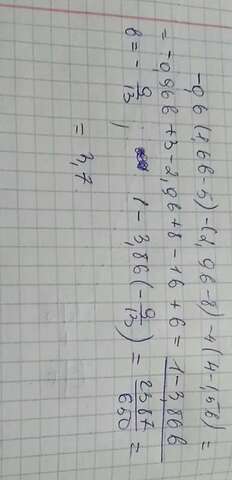 -0,6 (1,6b-5)-(2,9b-8)-4(4-1,5b) =
= -0,96b+3-2,9b+8-16+6 = 1-3,86b
b = - 9/13 ; 1-3,86(-9/13) = 2387/650 =
= 3,7